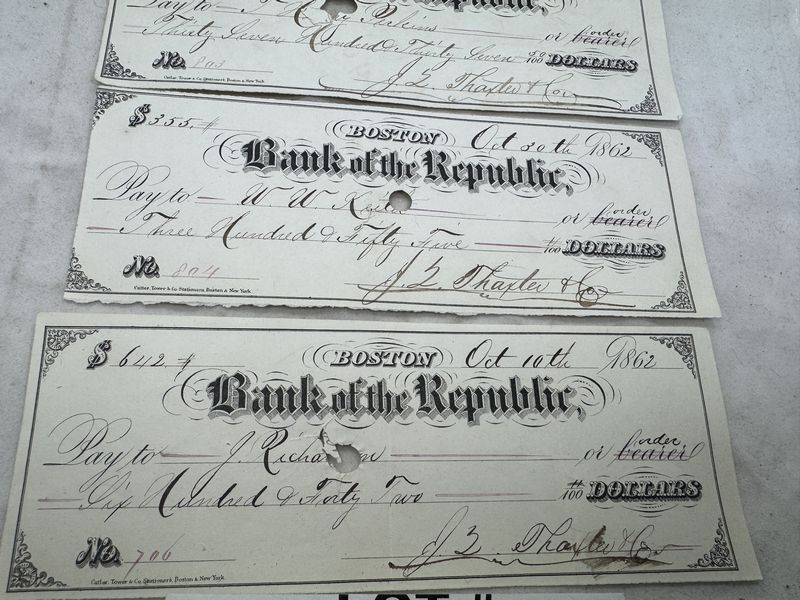 Pay to Perkins
or bearer order
Thirty Seven Hundred & Thirty Seven 50/100 DOLLARS
No. 803
J. Z. Thaxter & Co.
Cutter, Tower & Co. Stationers, Boston & New York
$355.#
BOSTON Oct 20th 1862
Bank of the Republic,
Pay to W. W. Keith
or bearer order
Three Hundred & Fifty Five #/100 DOLLARS
No. 804
J. Z. Thaxter & Co
Cutter, Tower & Co. Stationers, Boston & New York
$642 #
BOSTON Oct 10th 1862
Bank of the Republic,
Pay to J. Richardson
or bearer order
Six Hundred & Forty Two #/100 DOLLARS
No. 706
J. Z. Thaxter & Co.
Cutter, Tower & Co. Stationers, Boston & New York
LOT #